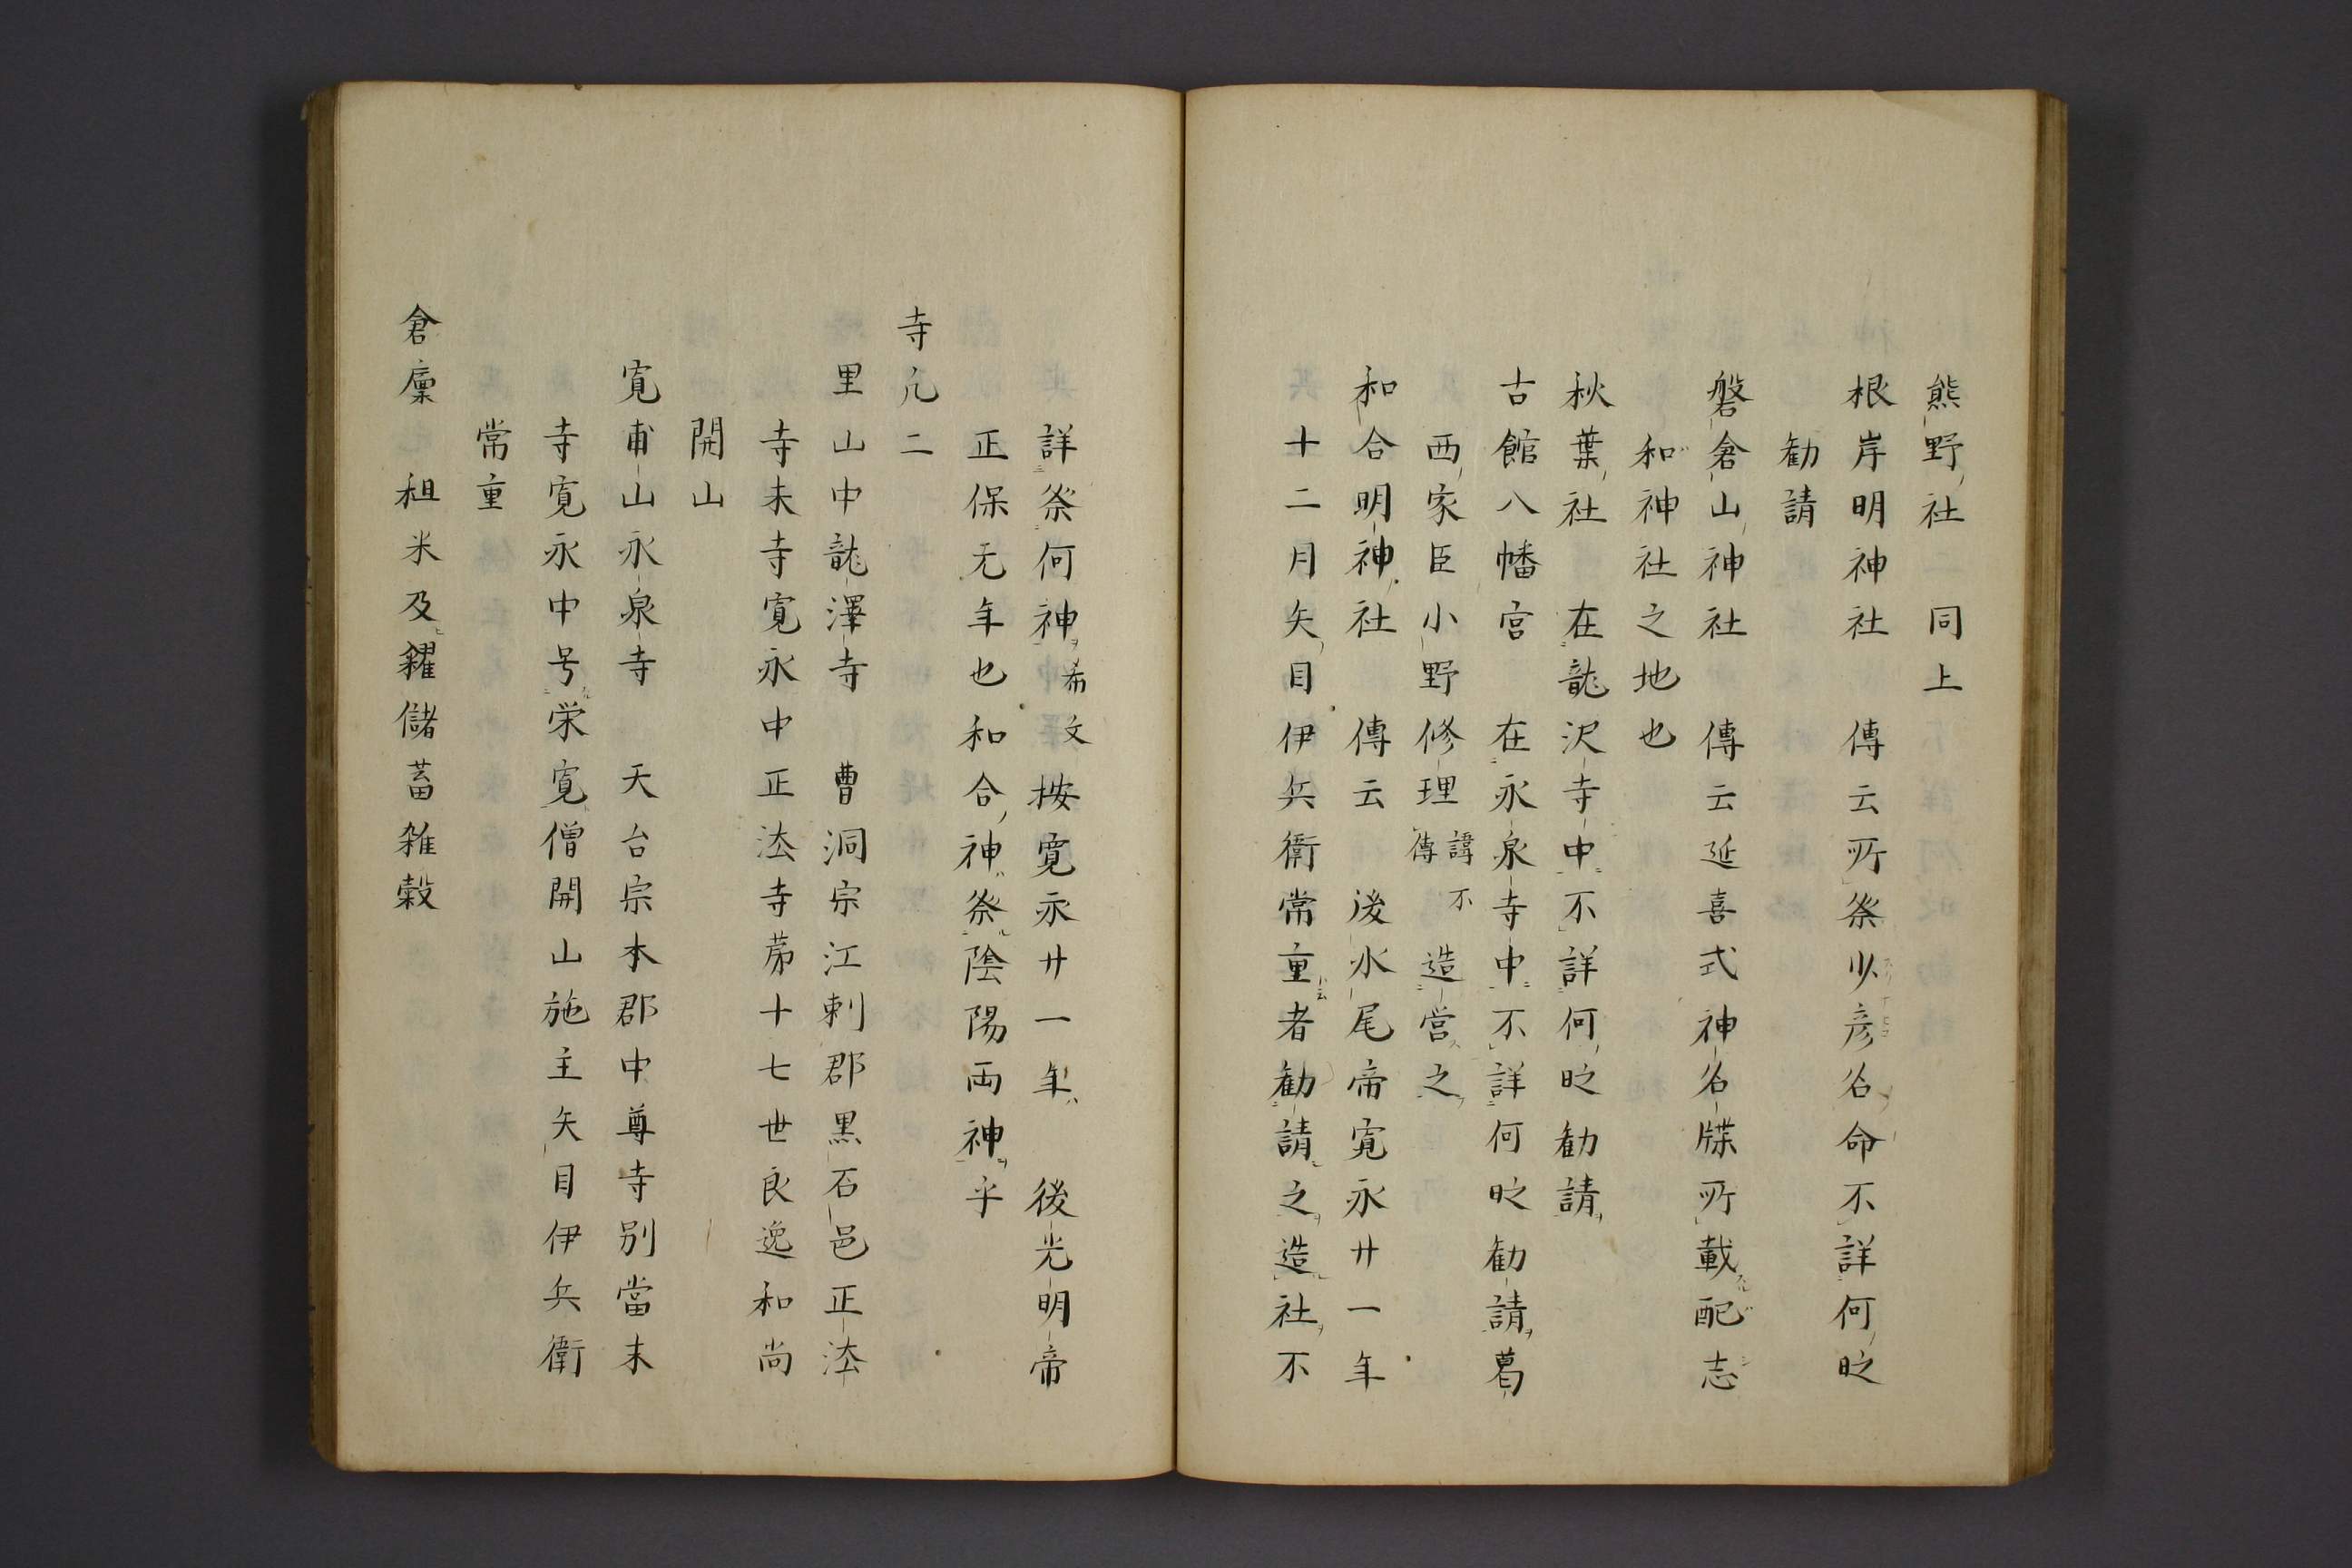 熊野社　同上
根岸明神社　傳云所祭少彦名命不詳何时
勧請
磐倉山神社　傳云延喜式神名牒所載配志
和神社之地也
秋葉社　在龍沢寺中不詳何时勧請
古館八幡宮　在永泉寺中不詳何时勧請葛
西家臣小野修理諱不傳造営之
和合明神社　傳云　後水尾帝寛永廿一年
十二月矢目伊兵衛常重者勧請之造社不
詳祭何神希文按寛永廿一年　後光明帝
正保元年也和合神祭陰陽両神乎
寺凡二
里山中龍澤寺　曹洞宗江刺郡黒石邑正法
寺末寺寛永中正法寺苐十七世良逸和尚
開山
寛甫山永泉寺　天台宗本郡中尊寺別當末
寺寛永中号栄寛僧開山施主矢目伊兵衛
常重
倉廩　租米及糴儲蓄雑穀